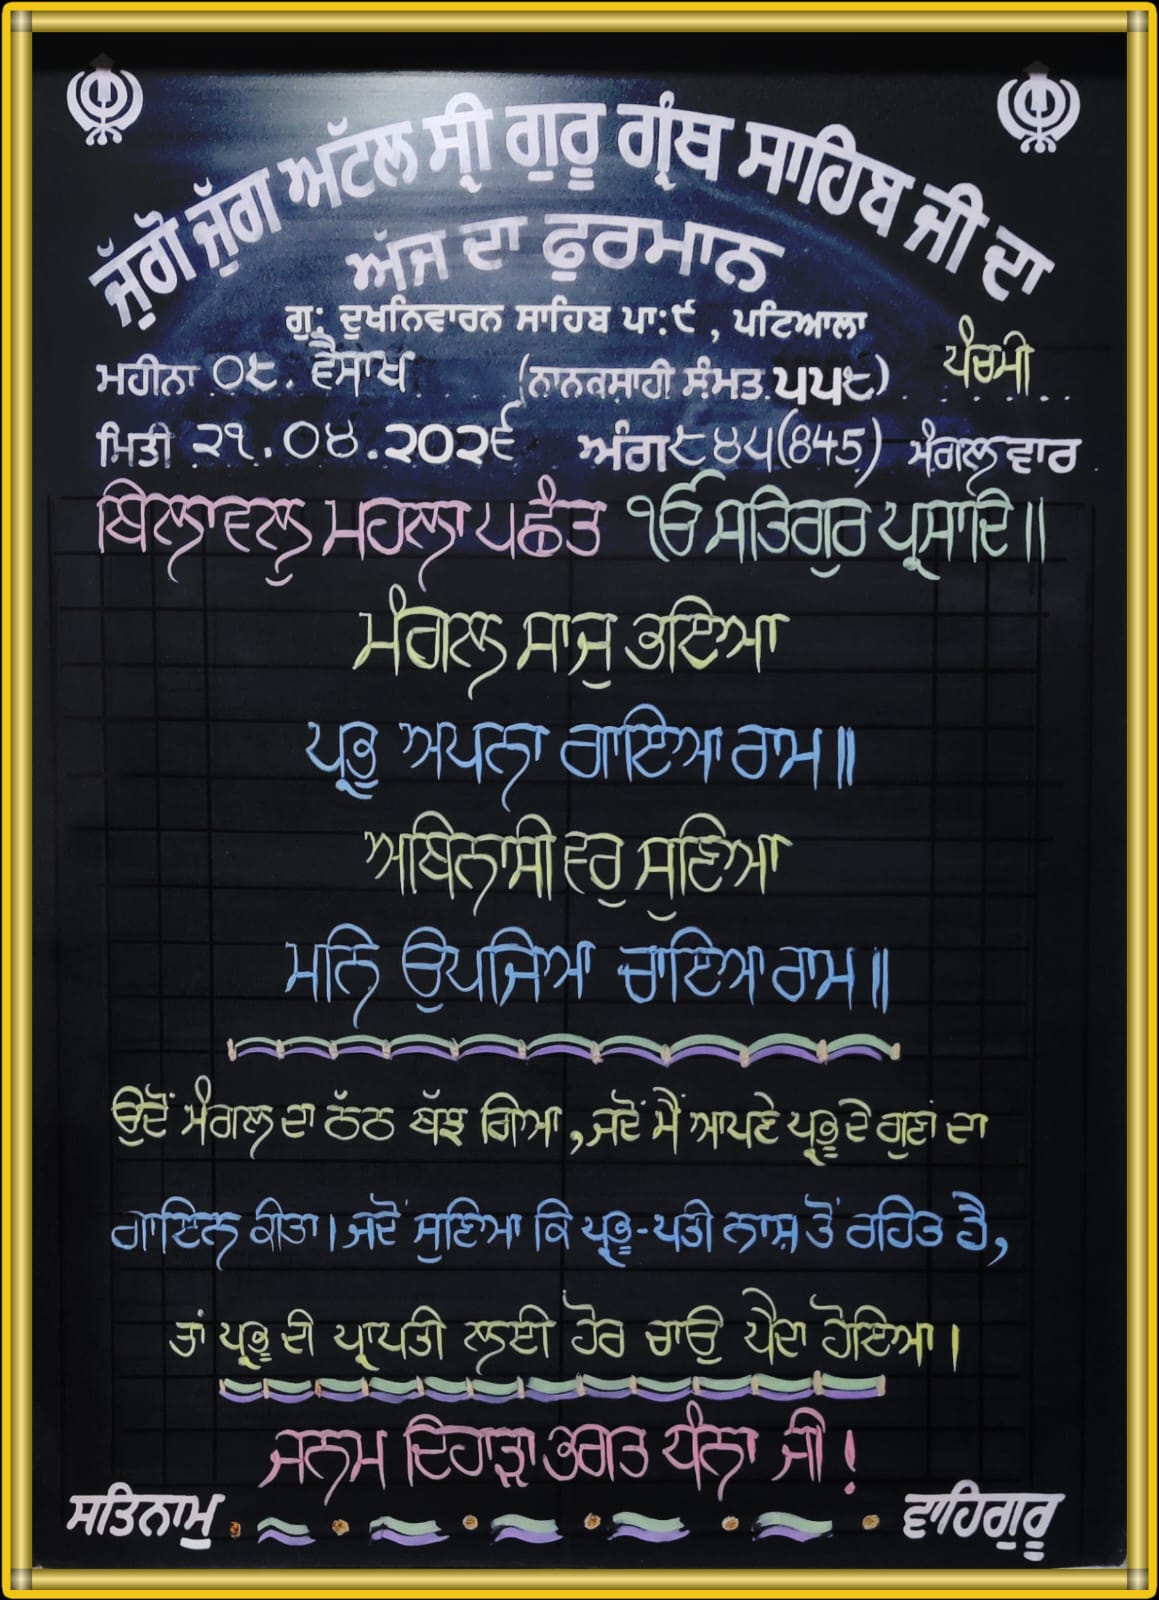 ਜੁੱਗੋ ਜੁੱਗ ਅਟੱਲ ਸ੍ਰੀ ਗੁਰੂ ਗ੍ਰੰਥ ਸਾਹਿਬ ਜੀ ਦਾ
ਅੱਜ ਦਾ ਫੁਰਮਾਨ
ਗੁ: ਦੁਖਨਿਵਾਰਨ ਸਾਹਿਬ ਪਾ:੯, ਪਟਿਆਲਾ
ਮਹੀਨਾ ੦੯. ਵੈਸਾਖ (ਨਾਨਕਸਾਹੀ ਸੰਮਤ ੫੫੮) ਪੰਚਮੀ
ਮਿਤੀ ੨੧.੦੪.੨੦੨੬ ਅੰਗ ੮੪੫(845) ਮੰਗਲਵਾਰ
ਬਿਲਾਵਲੁ ਮਹਲਾ ੫ ਛੰਤ ੴ ਸਤਿਗੁਰ ਪ੍ਰਸਾਦਿ॥
ਮੰਗਲ ਸਾਜੁ ਭਇਆ
ਪ੍ਰਭੁ ਅਪਨਾ ਗਾਇਆ ਰਾਮ॥
ਅਬਿਨਾਸੀ ਵਰੁ ਸੁਣਿਆ
ਮਨਿ ਉਪਜਿਆ ਚਾਇਆ ਰਾਮ॥
ਉਦੋਂ ਮੰਗਲ ਦਾ ਠੱਠ ਬੱਝ ਗਿਆ, ਜਦੋਂ ਮੈਂ ਆਪਣੇ ਪ੍ਰਭੂ ਦੇ ਗੁਣਾਂ ਦਾ
ਗਾਇਨ ਕੀਤਾ। ਜਦੋਂ ਸੁਣਿਆ ਕਿ ਪ੍ਰਭੂ-ਪਤੀ ਨਾਸ਼ ਤੋਂ ਰਹਿਤ ਹੈ,
ਤਾਂ ਪ੍ਰਭੂ ਦੀ ਪ੍ਰਾਪਤੀ ਲਈ ਹੋਰ ਚਾਉ ਪੈਦਾ ਹੋਇਆ।
ਜਨਮ ਦਿਹਾੜਾ ਭਗਤ ਧੰਨਾ ਜੀ!
ਸਤਿਨਾਮੁ ਵਾਹਿਗੁਰੂ